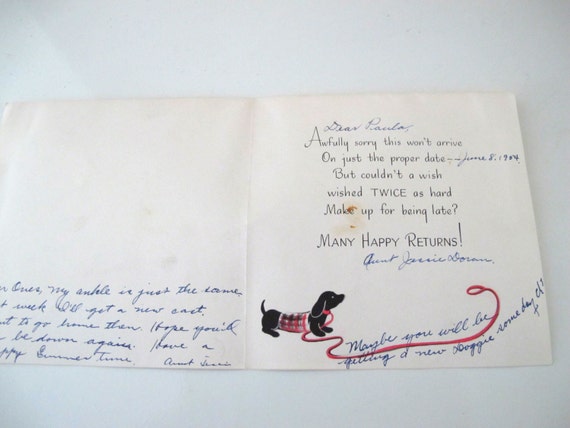 Ones, my ankle is just the same
week I'll get a new cast,
to go home then. Hope you'll
be down again. Have a
Summer time.
Aunt Jessie
Dear Paula,
Awfully sorry this won't arrive
On just the proper date--June 8, 1964
But couldn't a wish
wished TWICE as hard
Make up for being late?
MANY HAPPY RETURNS!
Aunt Jessie Doran
Maybe you will be
getting a new Doggie some day